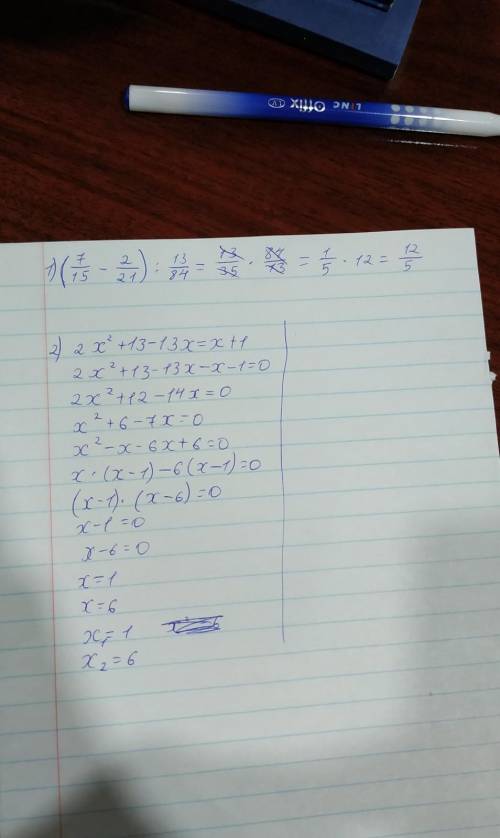 LINC Offix
1) (7/15 - 2/21) : 13/84 = 13/35 · 84/13 = 1/5 · 12 = 12/5
2) 2x² + 13 - 13x = x + 1
2x² + 13 - 13x - x - 1 = 0
2x² + 12 - 14x = 0
x² + 6 - 7x = 0
x² - x - 6x + 6 = 0
x · (x - 1) - 6(x - 1) = 0
(x - 1) · (x - 6) = 0
x - 1 = 0
x - 6 = 0
x = 1
x = 6
x₁ = 1
x₂ = 6